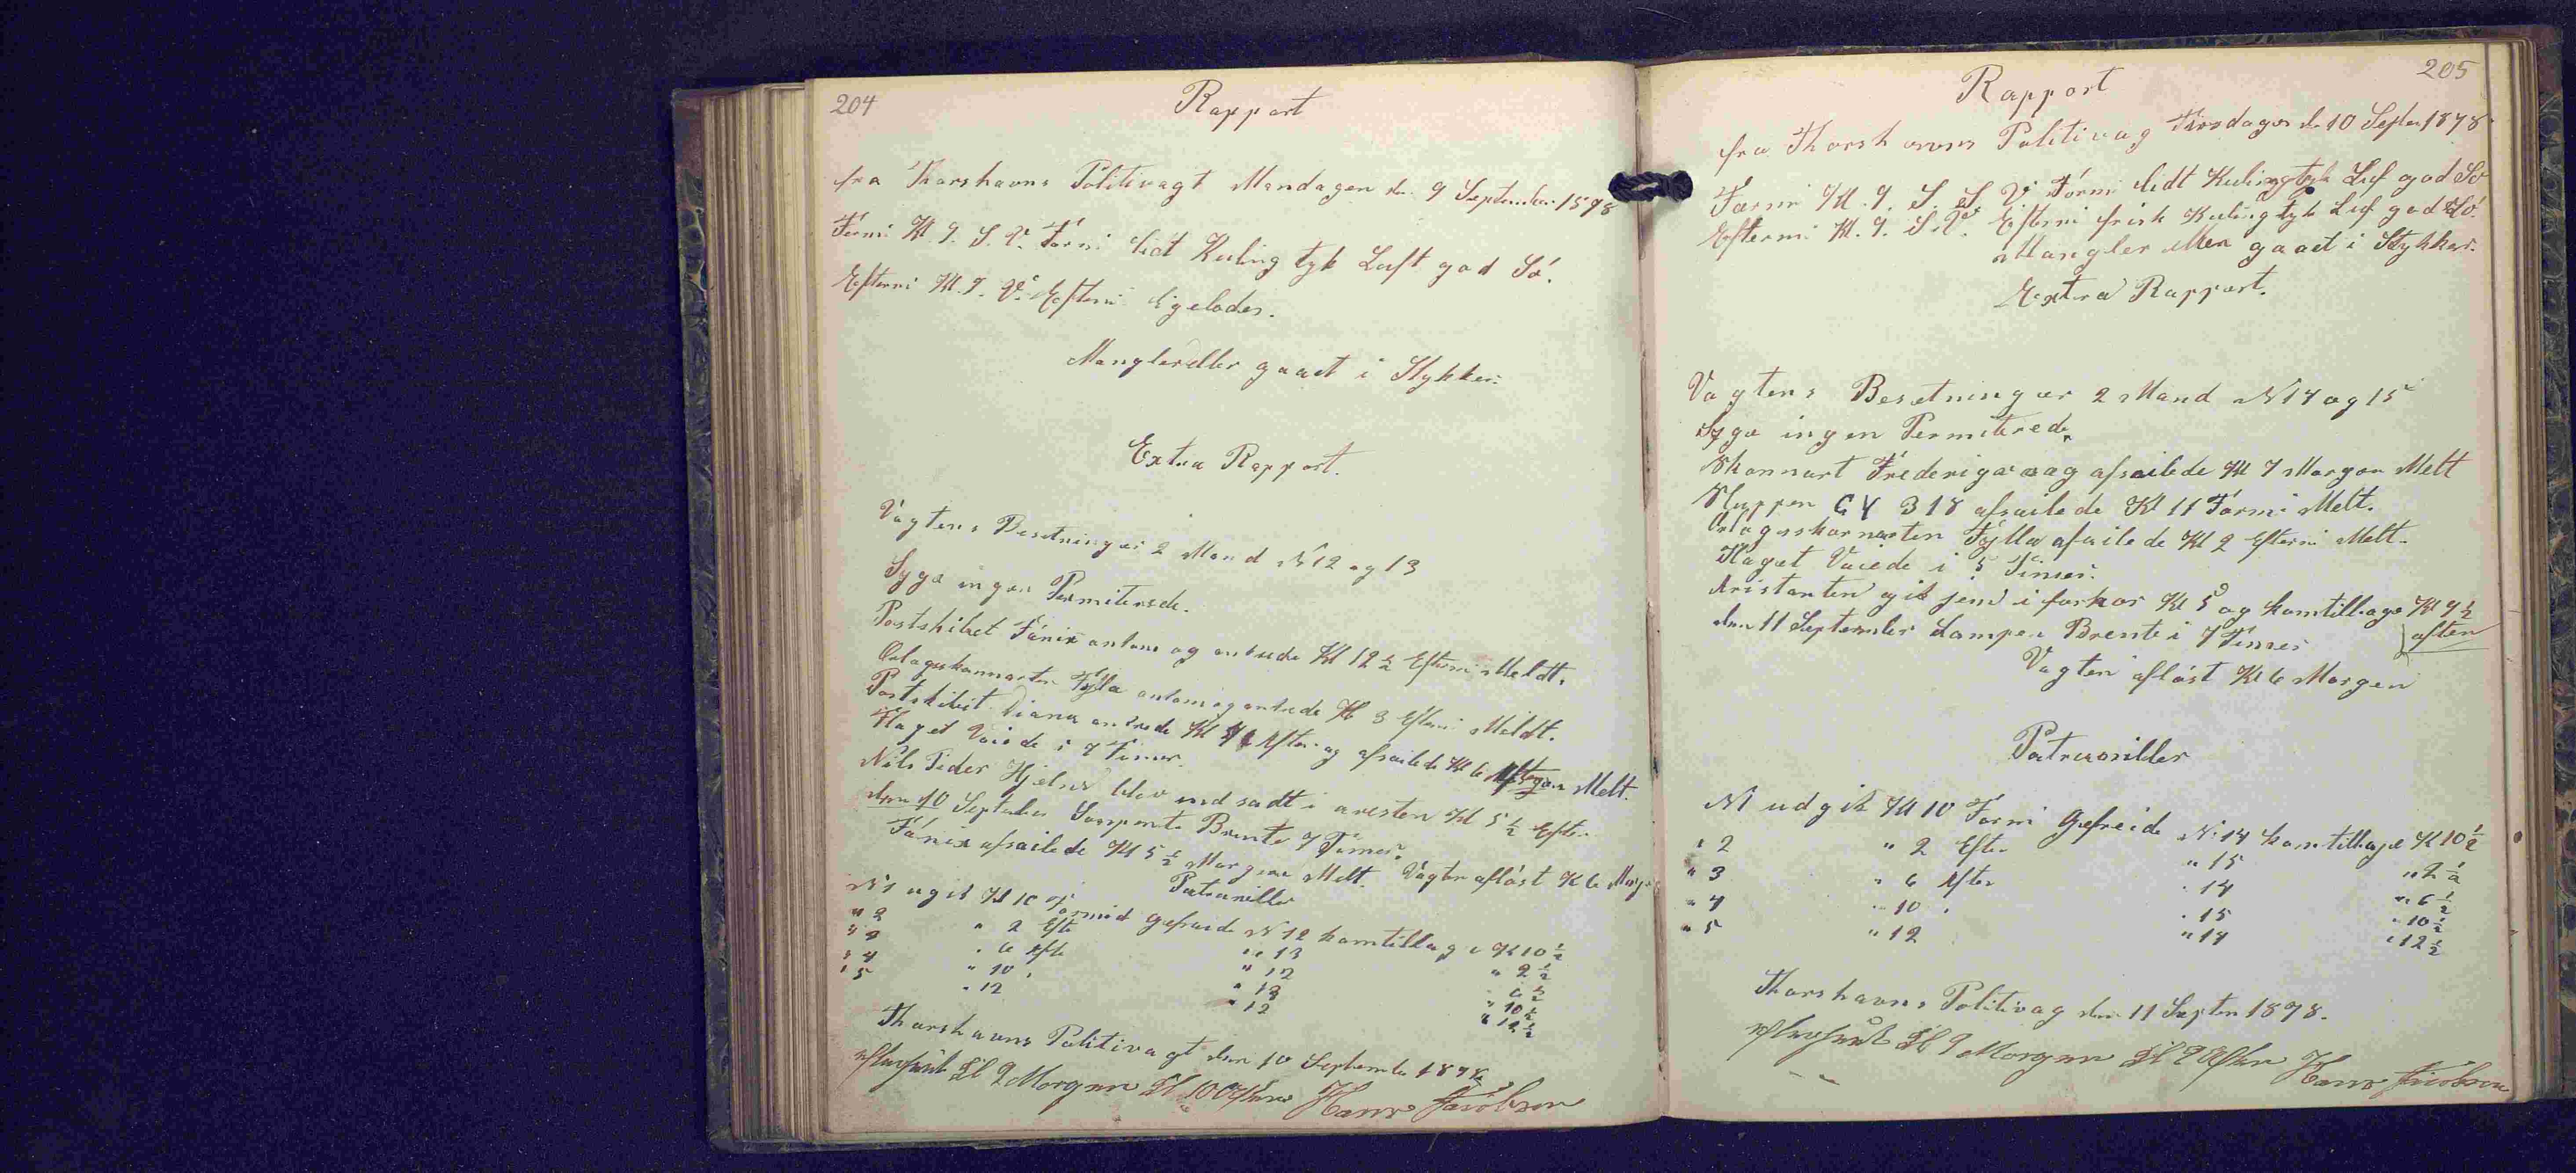 204
Rapport
fra Thorshavns Politivagt Mandagen den 9 September 1898
Formi Kl. 9. S. V. Formi lidt Kuling tyk Luft god Sø.
Eftermi Kl. 9. V. Eftermi ligeledes.
Mangler eller gaaet i Stykker.
Extra Rapport.
Vagtens Besetning er 2 Mand N 12 og 13
Syge ingen Permiterede.
Postskibet Fönix ankom og ankrede Kl 12 ½ Eftermi Meldt.
Orlogskonnarten Fylla ankom og ankrede Kl 3 Eftermi Meldt.
Postskibet Diana ankrede Kl Efter og afsailede Kl 6 Melt.
Flaget Vaiede i 7 Timer.
Nils Peder Hjelm blev indsadt i aresten Kl 5 ½ Efter
den 10 September Lamperne Brente 7 Timer.
Fönix afsailede Kl 5 ½ Morgen Melt. Vagten afløst Kl 6 Morgen
Patrouiller
N 1 ugik Kl 10 formid Gefreide N 12 kom tillage Kl 10 ½
" 2 " 2 Efte " 13 " 2 ½
" 3 " 6 Efte " 12 " 6 ½
" 4 " 10 " " 13 " 10 ½
" 5 " 12 " 12 " 12 ½
Thorshavns Politivagt den 10 September 1898
Kl 9 Morgen Kl 10 Aften Hans Jacobsen
205
Rapport
fra Thorshavns Politivag Tirsdagen den 10 Septem 1898
Formi Kl. 9. S. S. V Formi lidt Kuling tyk Luf god Sø
Eftermi Kl. 9. S. V. Eftermi frisk Kuling tyk Luf god Sø.
Mangler eller gaaet i Stykker.
Extra Rapport.
Vagtens Besetning er 2 Mand N 14 og 15
Syge ingen Permiterede
Skonnart Frederigavaag afsailede Kl 7 Morgen Melt
Sluppen GY 318 afsailede Kl 11 Formi Melt.
Orlogsskonnarten Fylla afsailede Kl 2 Eftermi Melt.
Flaget Vaiede i 5 Timer.
Aristanten gik jend i forhør Kl 5 og kom tillage Kl 9 ½ aften
den 11 September Lampen Brente i 7 Timer
Vagten afløst Kl 6 Morgen
Patruoniller
N 1 udgik Kl 10 Formi Gefreide N. 14 kom tillage Kl 10 ½
" 2 " 2 Efter " 15 " 2 ½
" 3 " 6 Efter " 14 " 6 ½
" 4 " 10 " " 15 " 10 ½
" 5 " 12 " 14 " 12 ½
Thorshavns Politivag den 11 Septem 1898.
Kl 9 Morgen Kl 9 Aften Hans Jacobsen